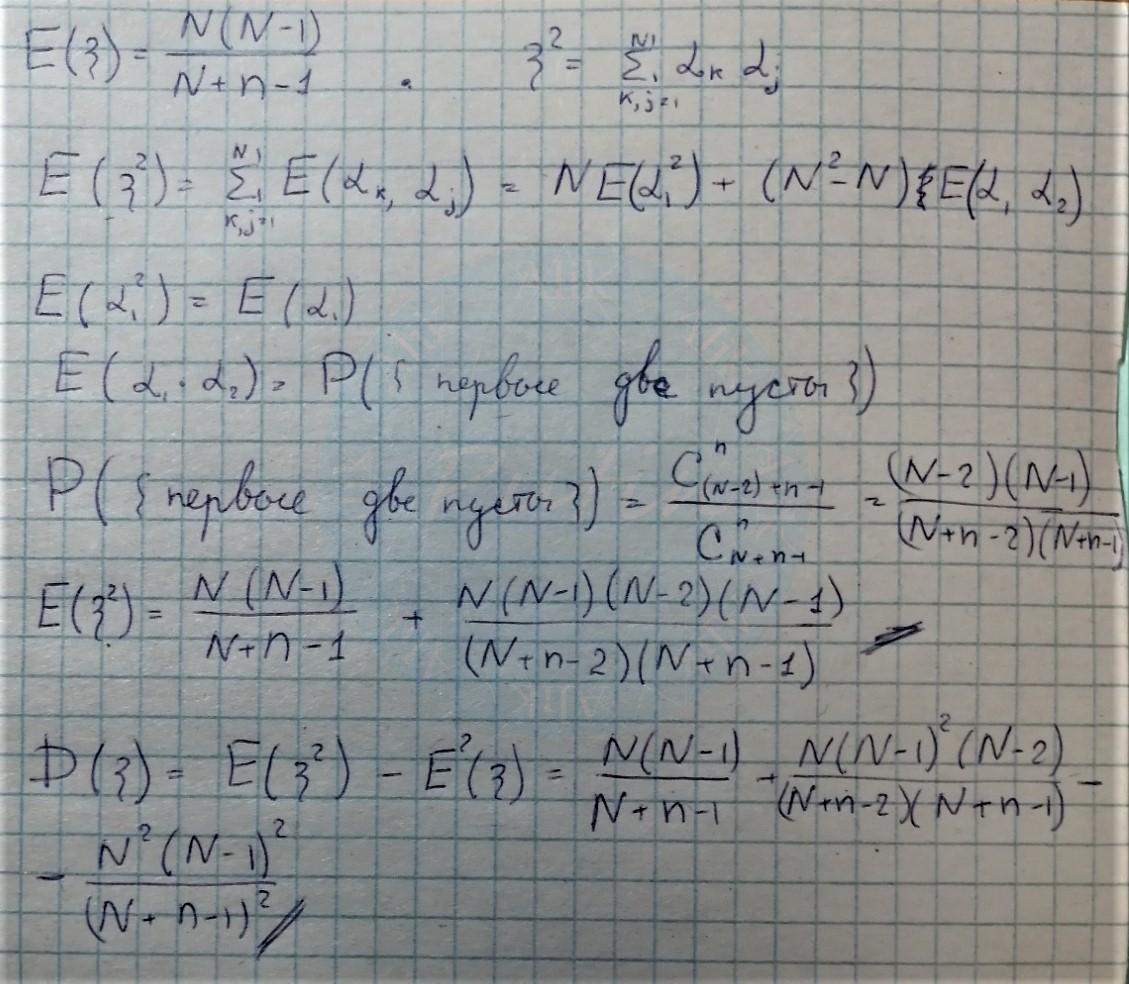 E(ξ) = N(N-1) / N+n-1 . ξ² = Σ_{k,j=1}^{N} α_k α_j
E(ξ²) = Σ_{k,j=1}^{N} E(α_k, α_j) = N E(α₁²) + (N²-N) E(α₁ α₂)
E(α₁²) = E(α₁)
E(α₁·α₂) = P({первые две пусты})
P({первые две пусты}) = C^n_{(N-2)+n-1} / C^n_{N+n-1} = (N-2)(N-1) / (N+n-2)(N+n-1)
E(ξ²) = N(N-1) / N+n-1 + N(N-1)(N-2)(N-1) / (N+n-2)(N+n-1)
D(ξ) = E(ξ²) - E²(ξ) = N(N-1) / N+n-1 + N(N-1)²(N-2) / (N+n-2)(N+n-1) -
- N²(N-1)² / (N+n-1)²